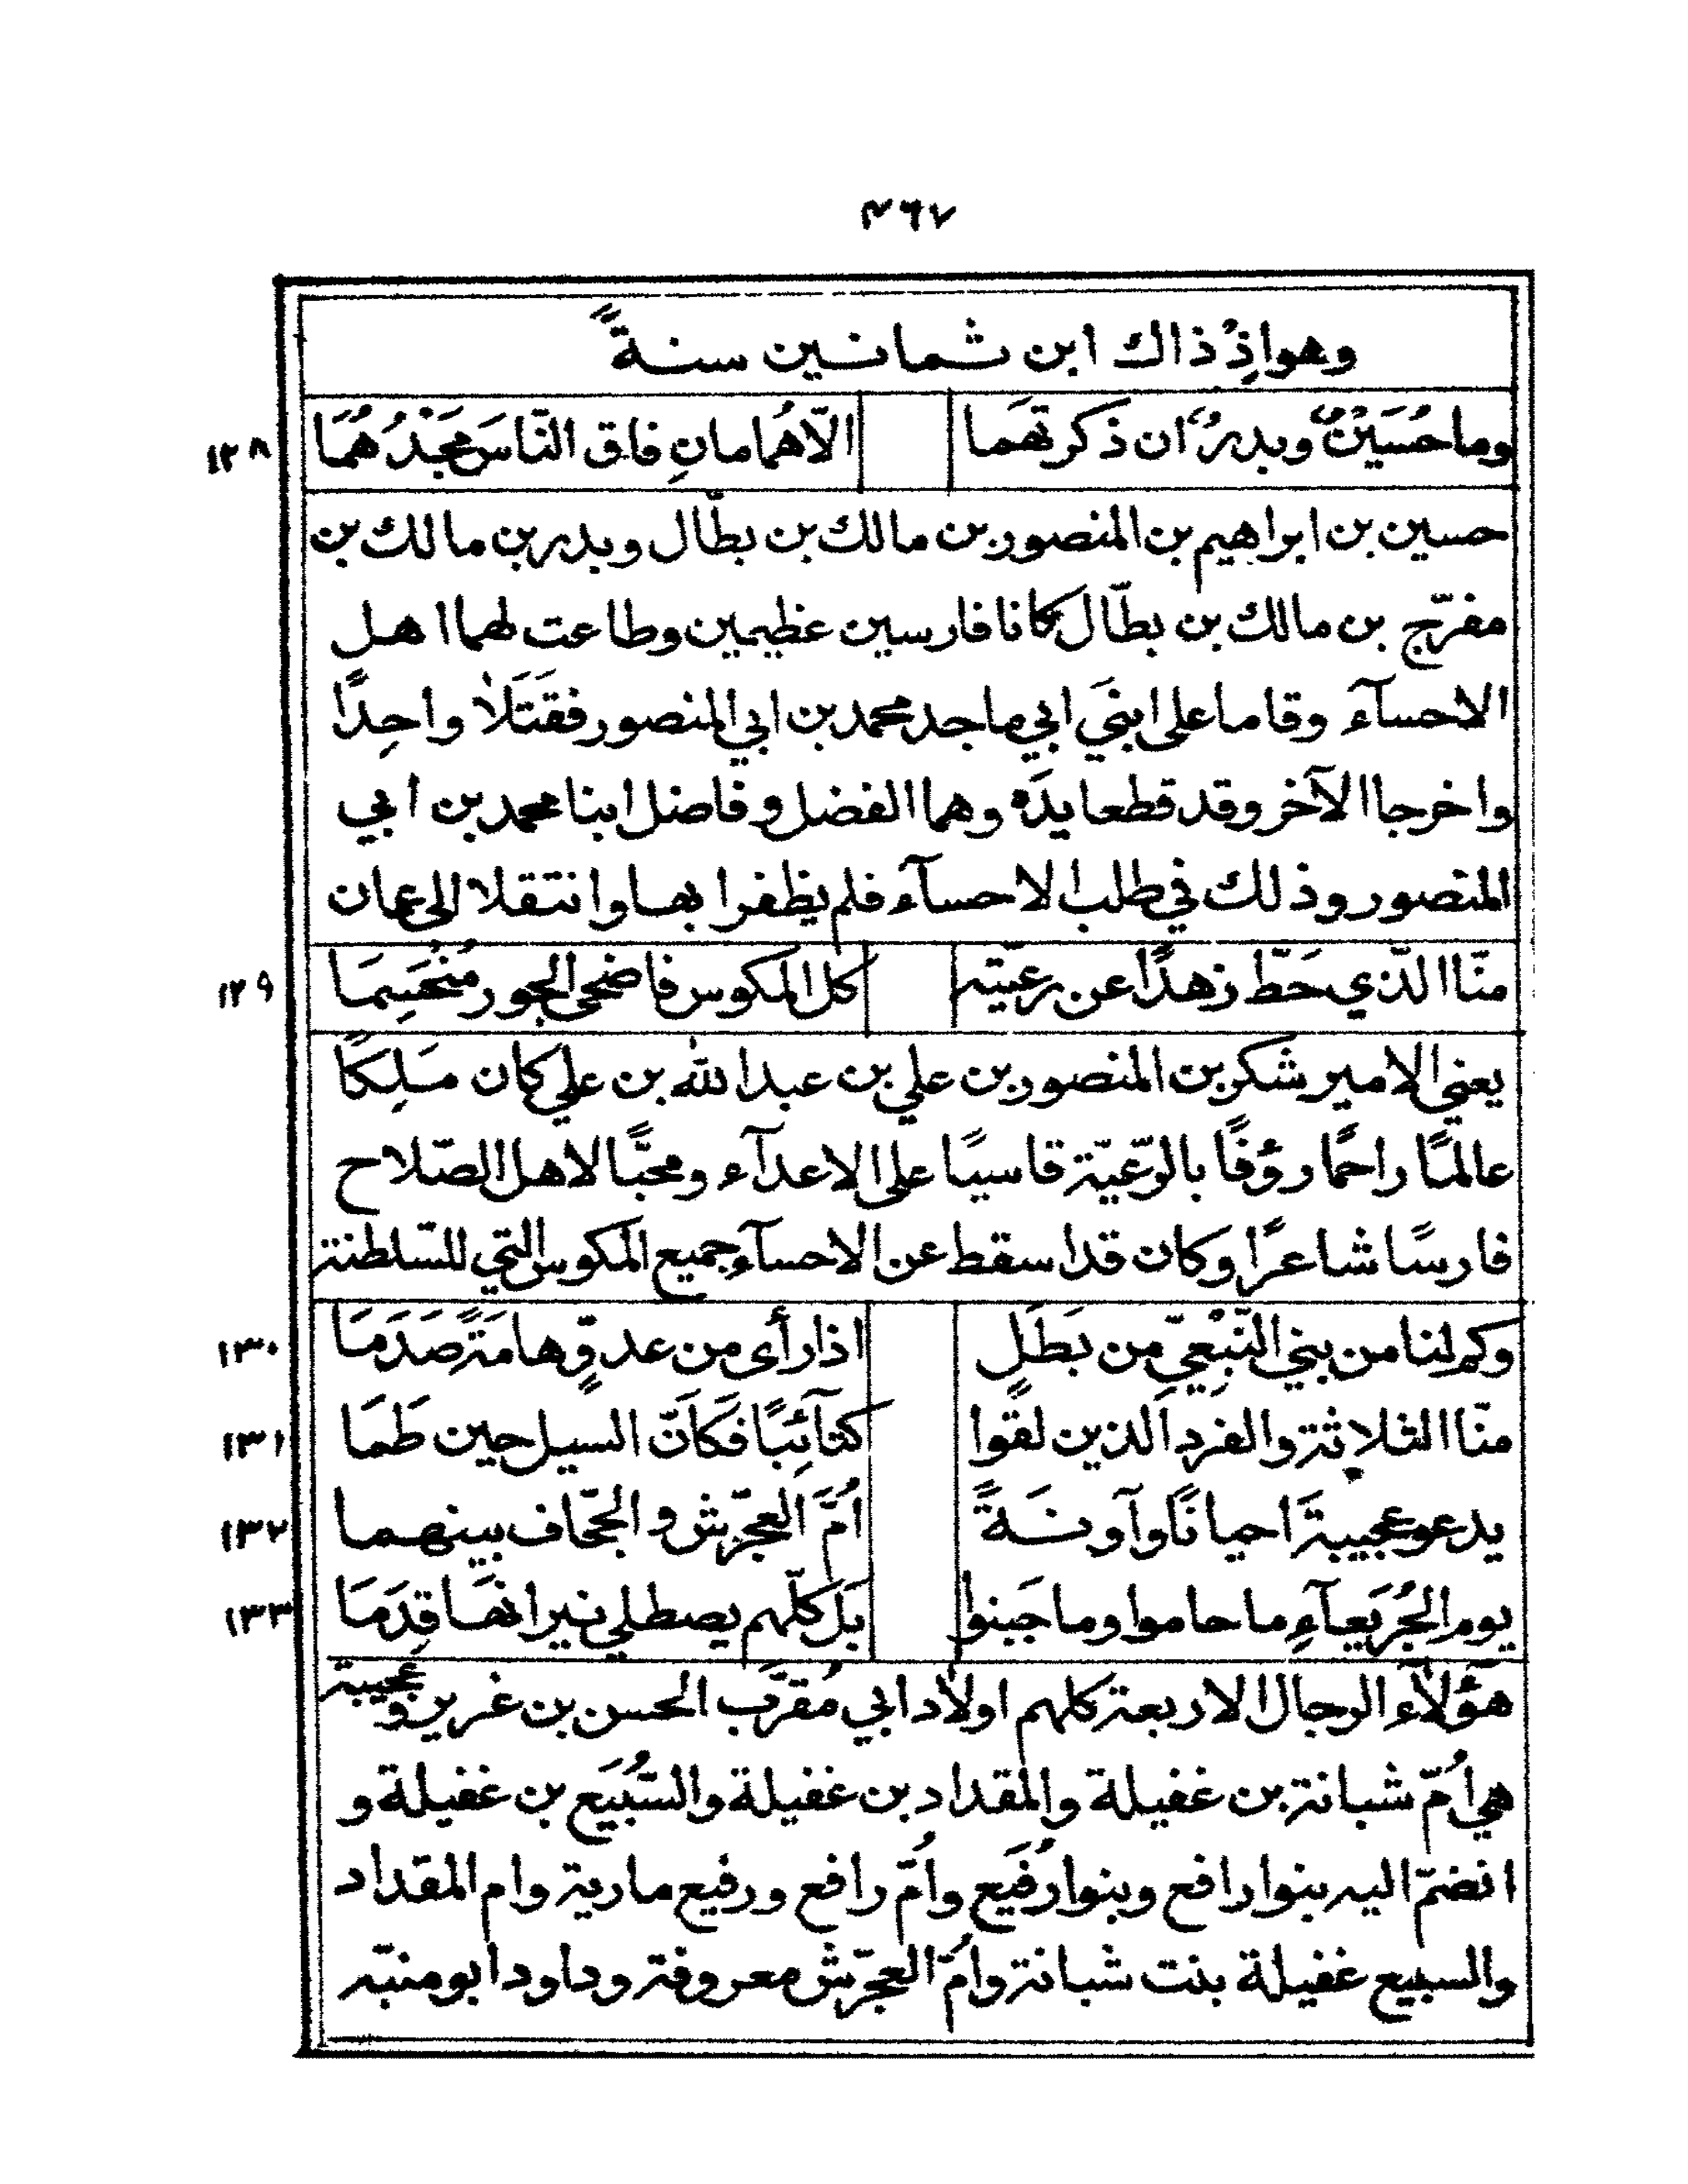 ٤٦٧
وهو اذِ ذاك ابن ثمانين سنةً
وما حُسَيْنٌ وبدرٌ ان ذكرتهَما الّا هُمامانِ فاق النّاسَ مَجْدُهُمَا ١٢٨
حسين بن ابراهيم بن المنصور بن مالك بن بطّال وبدر بن مالك بن
مفرّج بن مالك بن بطّال كانا فارسين عظيمين وطاعت لهما اهل
الاحسآء وقاما على ابنَي ابي ماجد محمد بن ابي المنصور فقَتَلَا واحِدًا
واخرجا الآخر وقد قطعا يدَه وهما الفضل وفاضل ابنا محمد بن ابي
المنصور وذلك في طلب الاحسآء فلم يظفرا بها وانتقلا الى عمان
منّا الّذي حَطّ زهدًا عن رعيّته كل المكوس فاضحى الجور مُنْحَسِمَا ١٢٩
يعني الامير شكر بن المنصور بن علي بن عبدالله بن علي كان مَلِكًا
عالمًا راحمًا رؤفًا بالرّعيّة قاسيًا على الاعدآء ومحبًّا لاهل الصّلاح
فارسًا شاعرًا وكان قد اسقط عن الاحسآء جميع المكوس التي للسّلطنة
وكم لنا من بني النّبعيّ مِن بَطَلٍ اذا رأى من عدوٍّ هامَةً صَدَمَا ١٣٠
منّا الثلاثة والفرد اَلذين لقوا كتآئِبًا فَكَاَنّ السيل حين طَمَا ١٣١
يدعو عجيبةَ احيانًا وآونَةً اُمَّ العجرّش والجحّاف بينهما ١٣٢
يوم الجُرَيعآءِ ما حاموا وما جَبنوا بَل كلّهم يصطلي نيرانهَا قِدَمَا ١٣٣
هَؤلآَءِ الرجال الاربعة كلهم اولاد ابي مُقرَّب الحسن بن غرير وعجيبة
هي اُمّ شبانة بن غفيلة والمقداد بن غفيلة والسُّبَيَع بن غفيلة و
انضمّ اليه بنوا رافع وبنوا رُفَيع واُمّ رافع ورفيع مارية وام المقداد
والسبيع غفيلة بنت شبانة واُمّ العجرّش معروفة وداود ابو منبّه